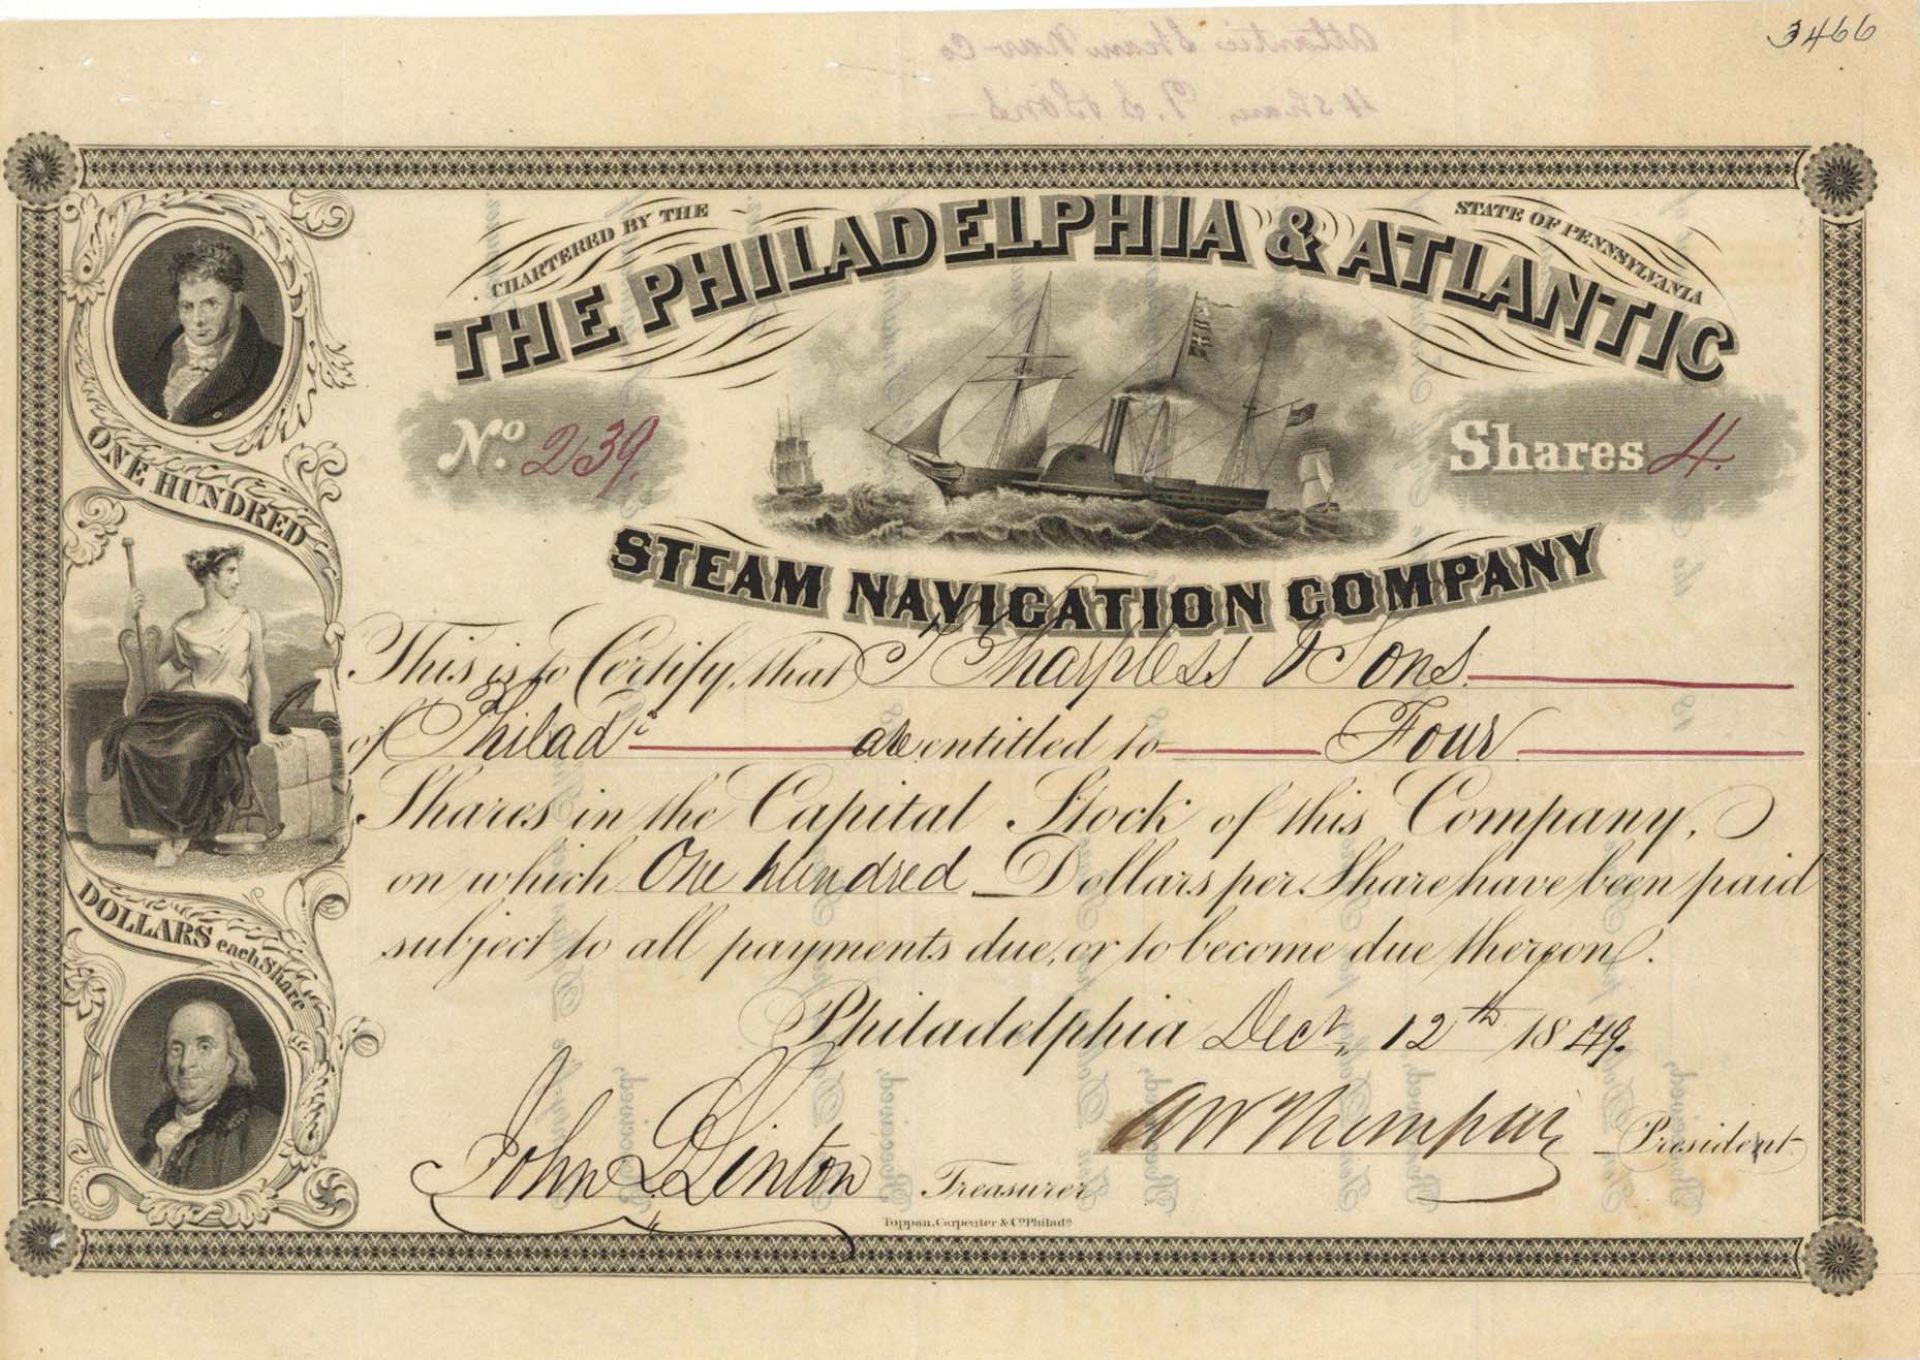 3466
CHARTERED BY THE STATE OF PENNSYLVANIA
THE PHILADELPHIA & ATLANTIC
No. 239. Shares 4.
STEAM NAVIGATION COMPANY
ONE HUNDRED
DOLLARS each Share
This is to Certify, that T Sharpless & Sons
of Philada are entitled to Four
Shares in the Capital Stock of this Company,
on which One hundred Dollars per Share have been paid
subject to all payments due, or to become due thereon.
Philadelphia Decr. 12th 1849.
John Linton Treasurer
A W Thompson President
Toppan, Carpenter & Co. Philada.